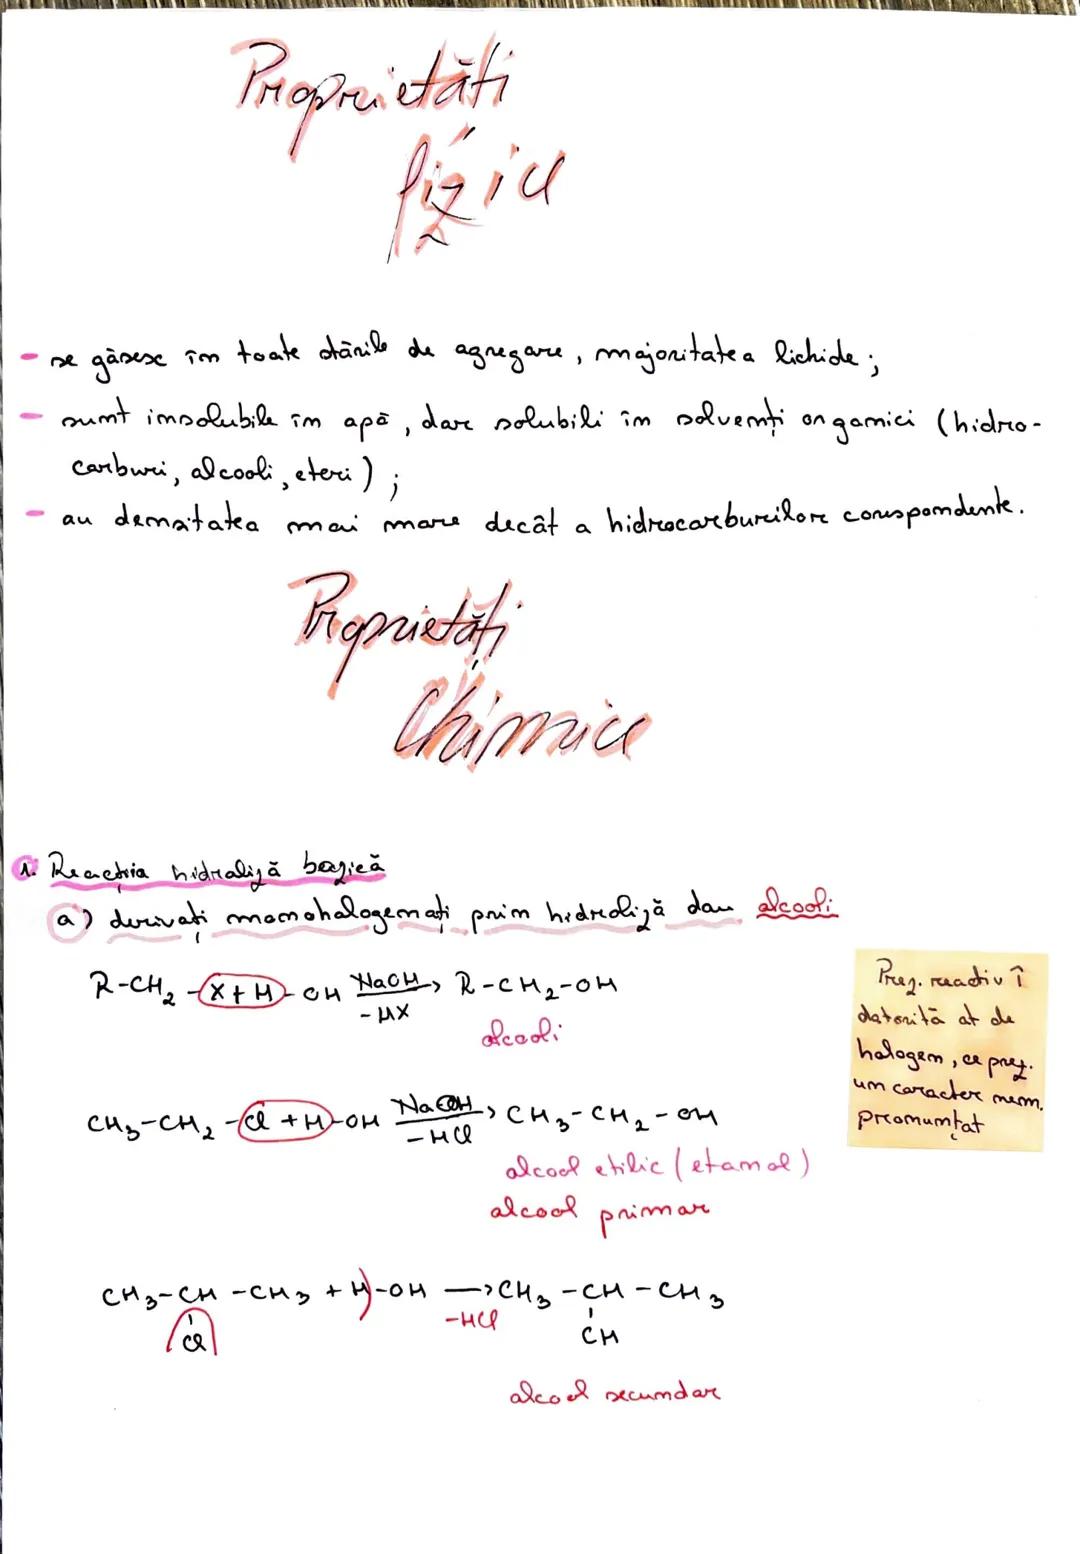 Proprietăți
fizice
- se găsesc în toate stările de agregare, majoritatea lichide;
- sunt insolubile în apă, dar solubili în solvenți organici (hidro-
carburi, alcooli, eteri);
- au densitatea mai mare decât a hidrocarburilor corespondente.
Proprietăți
Chimice
1. Reacția hidroliză bazică
a) derivați monohalogenați prin hidroliză dau alcooli
R-CH₂-X+H-OH NaOH→ R-CH₂-OH
-HX
alcooli
CH₃-CH₂-Cl+H-OH NaOH→ CH₃-CH₂-OH
-HCl
alcool etilic (etanol)
alcool primar
CH₃-CH-CH₃+H-OH →CH₃-CH-CH₃
-HCl
Cl OH
alcool secundar
Prez. reactiv î
datorită at de
halogen, ce prez.
un caracter nem.
pronunțat